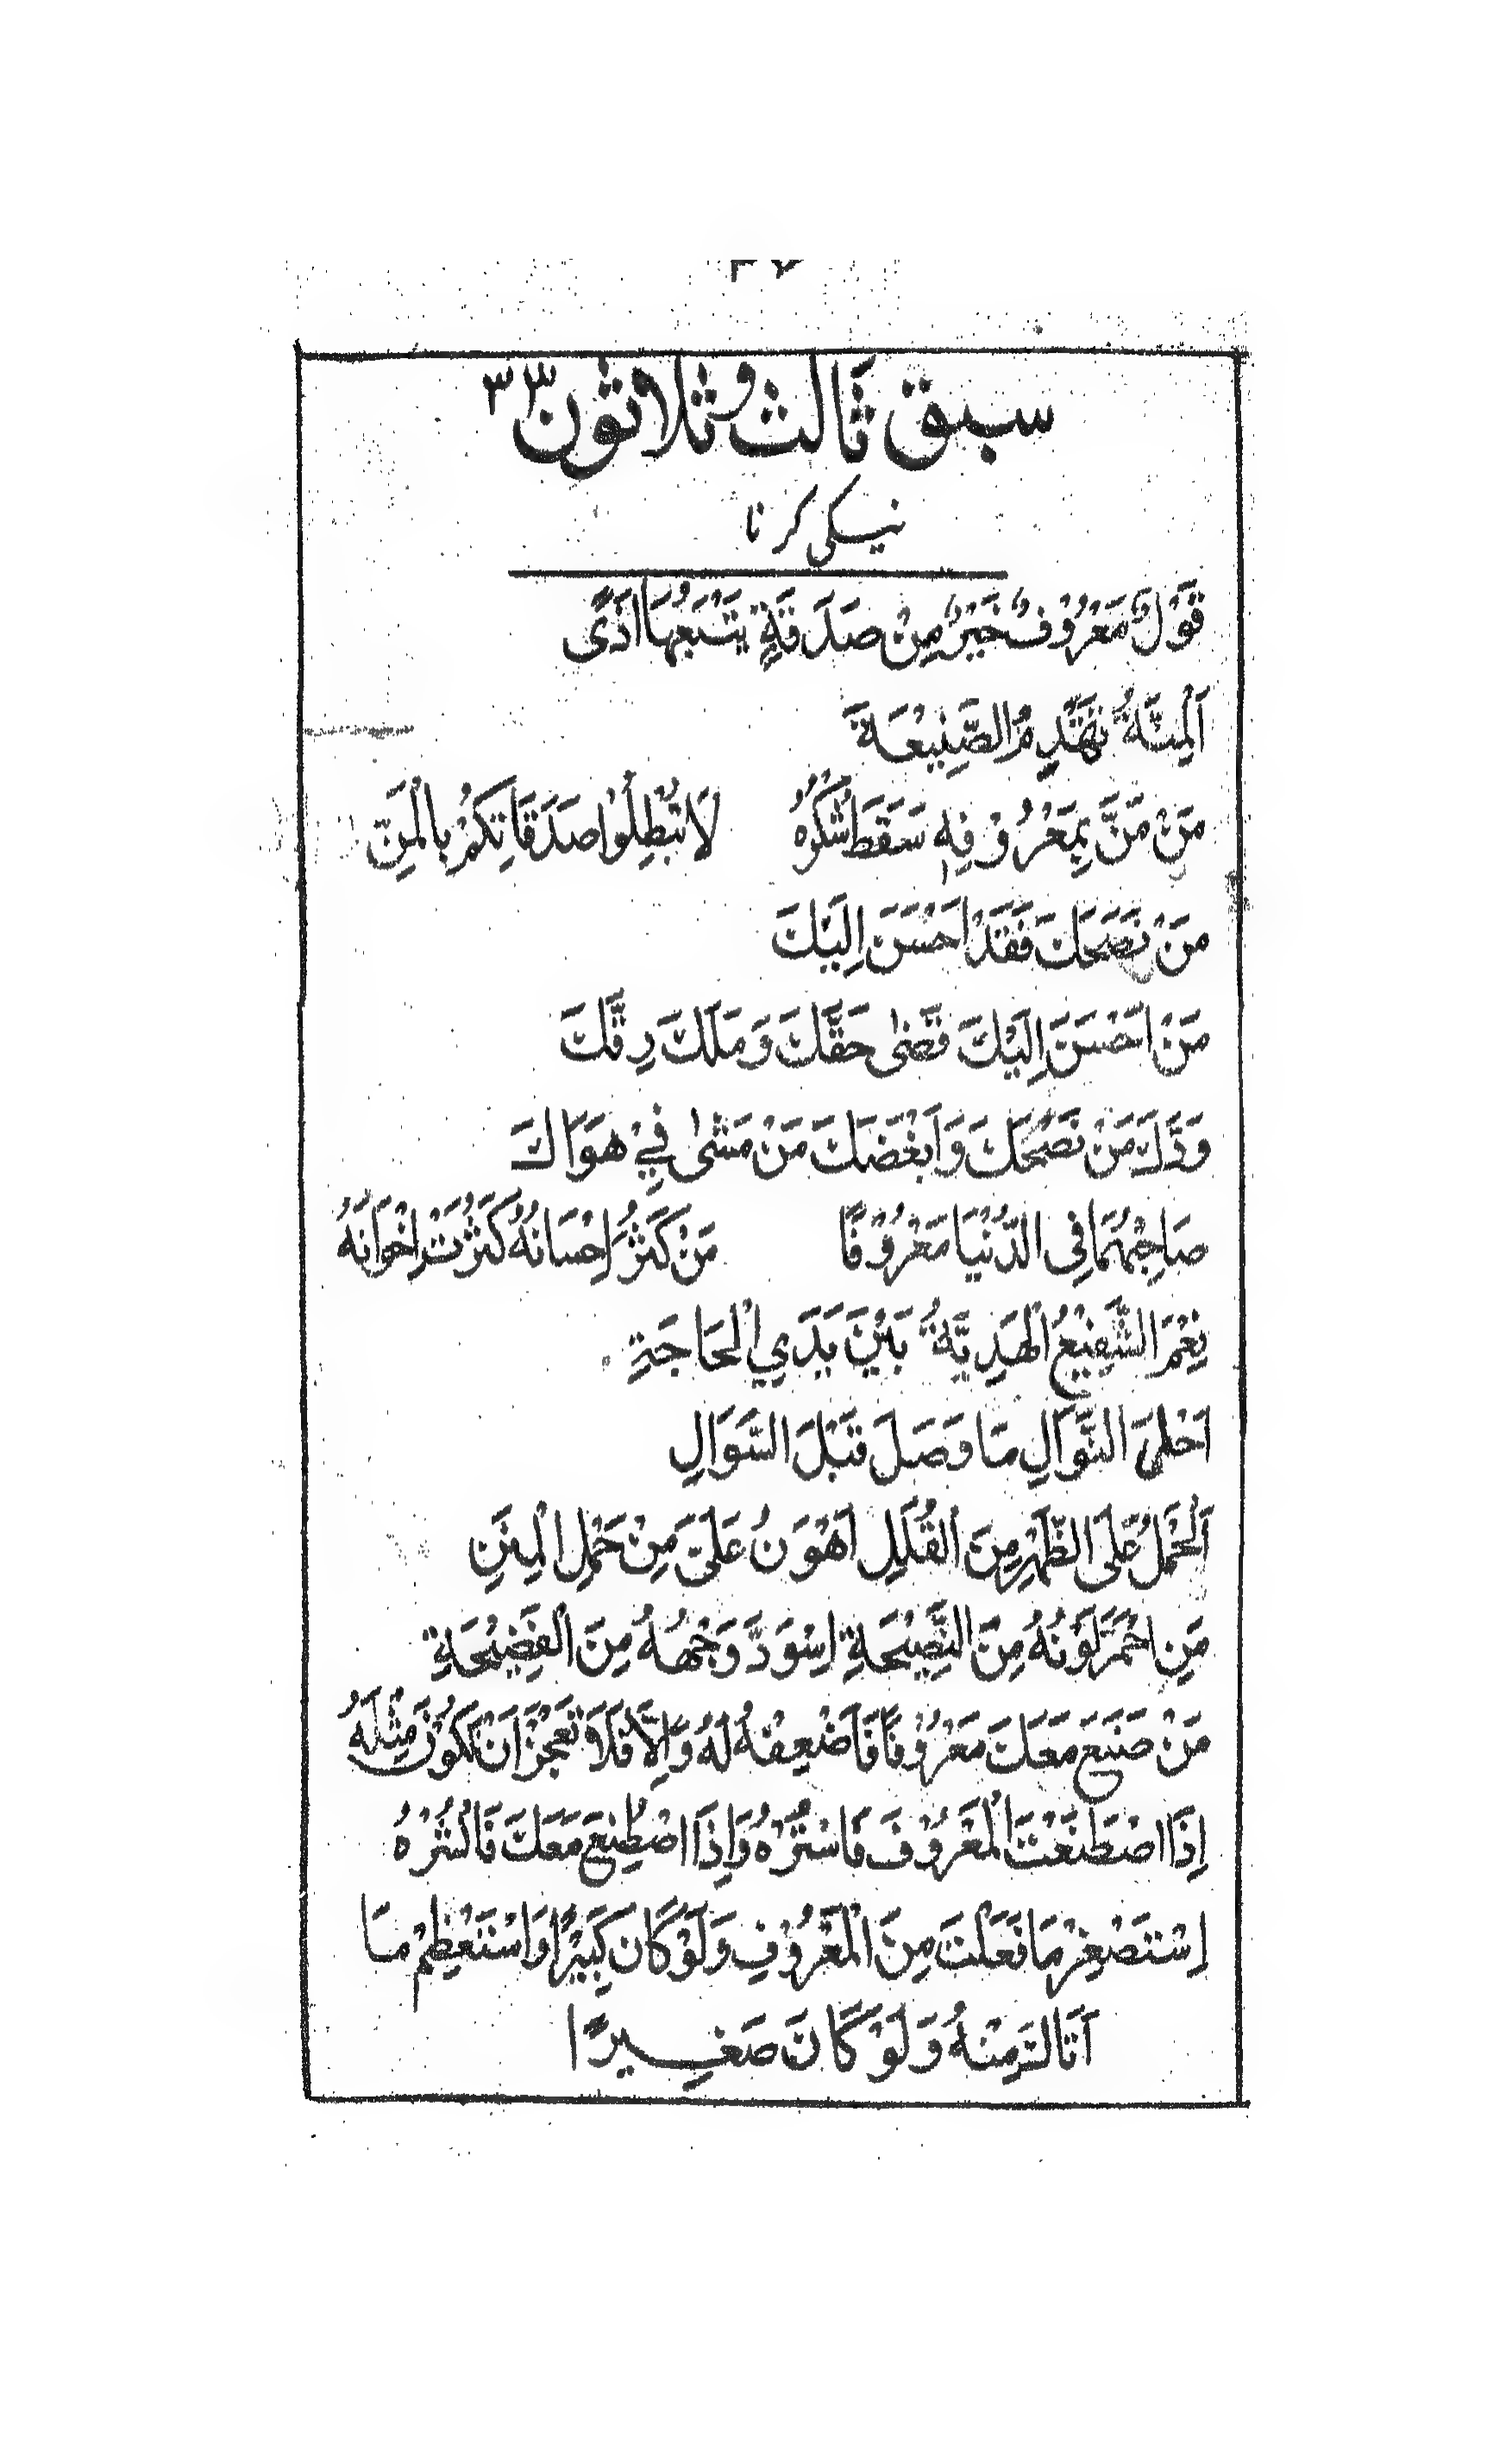 سبق ثالث وثلاثون ٣٣
نیکی کرنا
قَوْلٌ مَعْرُوْفٌ خَيْرٌ مِنْ صَدَقَةٍ يَتْبَعُهَا اَذًى
اَلْمِنَّةُ تَهْدِمُ الصَّنِيْعَةَ
مَنْ مَنَّ بِمَعْرُوْفِهٖ سَقَطَ شُكْرُهُ لَا تُبْطِلُوْا صَدَقَاتِكُمْ بِالْمَنِّ
مَنْ نَصَحَكَ فَقَدْ اَحْسَنَ اِلَيْكَ
مَنْ اَحْسَنَ اِلَيْكَ قَضٰى حَقَّكَ وَمَلَكَ رِقَّكَ
وَدَّكَ مَنْ نَصَحَكَ وَاَبْغَضَكَ مَنْ مَشٰى فِيْ هَوَاكَ
صَاحِبْهُمَا فِى الدُّنْيَا مَعْرُوْفًا مَنْ كَثُرَ اِحْسَانُهُ كَثُرَتْ اِخْوَانُهُ
نِعْمَ الشَّفِيْعُ الْهَدِيَّةُ بَيْنَ يَدَيِ الْحَاجَةِ
اَحْلَى النَّوَالِ مَا وَصَلَ قَبْلَ السُّوَالِ
اَلْحَمْلُ عَلَى الظَّهْرِ مِنَ الْقُلَلِ اَهْوَنُ عَلَيَّ مِنْ حَمْلِ الْمِنَنِ
مَنِ احْمَرَّ لَوْنُهُ مِنَ النَّصِيْحَةِ اِسْوَدَّ وَجْهُهُ مِنَ الْفَضِيْحَةِ
مَنْ صَنَعَ مَعَكَ مَعْرُوْفًا فَاَضْعِفْهُ لَهُ وَاِلَّا فَلَا تَعْجِزْ اَنْ تَكُوْنَ مِثْلَهُ
اِذَا اصْطَنَعْتَ الْمَعْرُوْفَ فَاسْتُرْهُ وَاِذَا اصْطُنِعَ مَعَكَ فَانْشُرْهُ
اِسْتَصْغِرْ مَا فَعَلْتَ مِنَ الْمَعْرُوْفِ وَلَوْ كَانَ كَبِيْرًا وَاسْتَعْظِمْ مَا
اَتَاكَ مِنْهُ وَلَوْ كَانَ صَغِيرًا